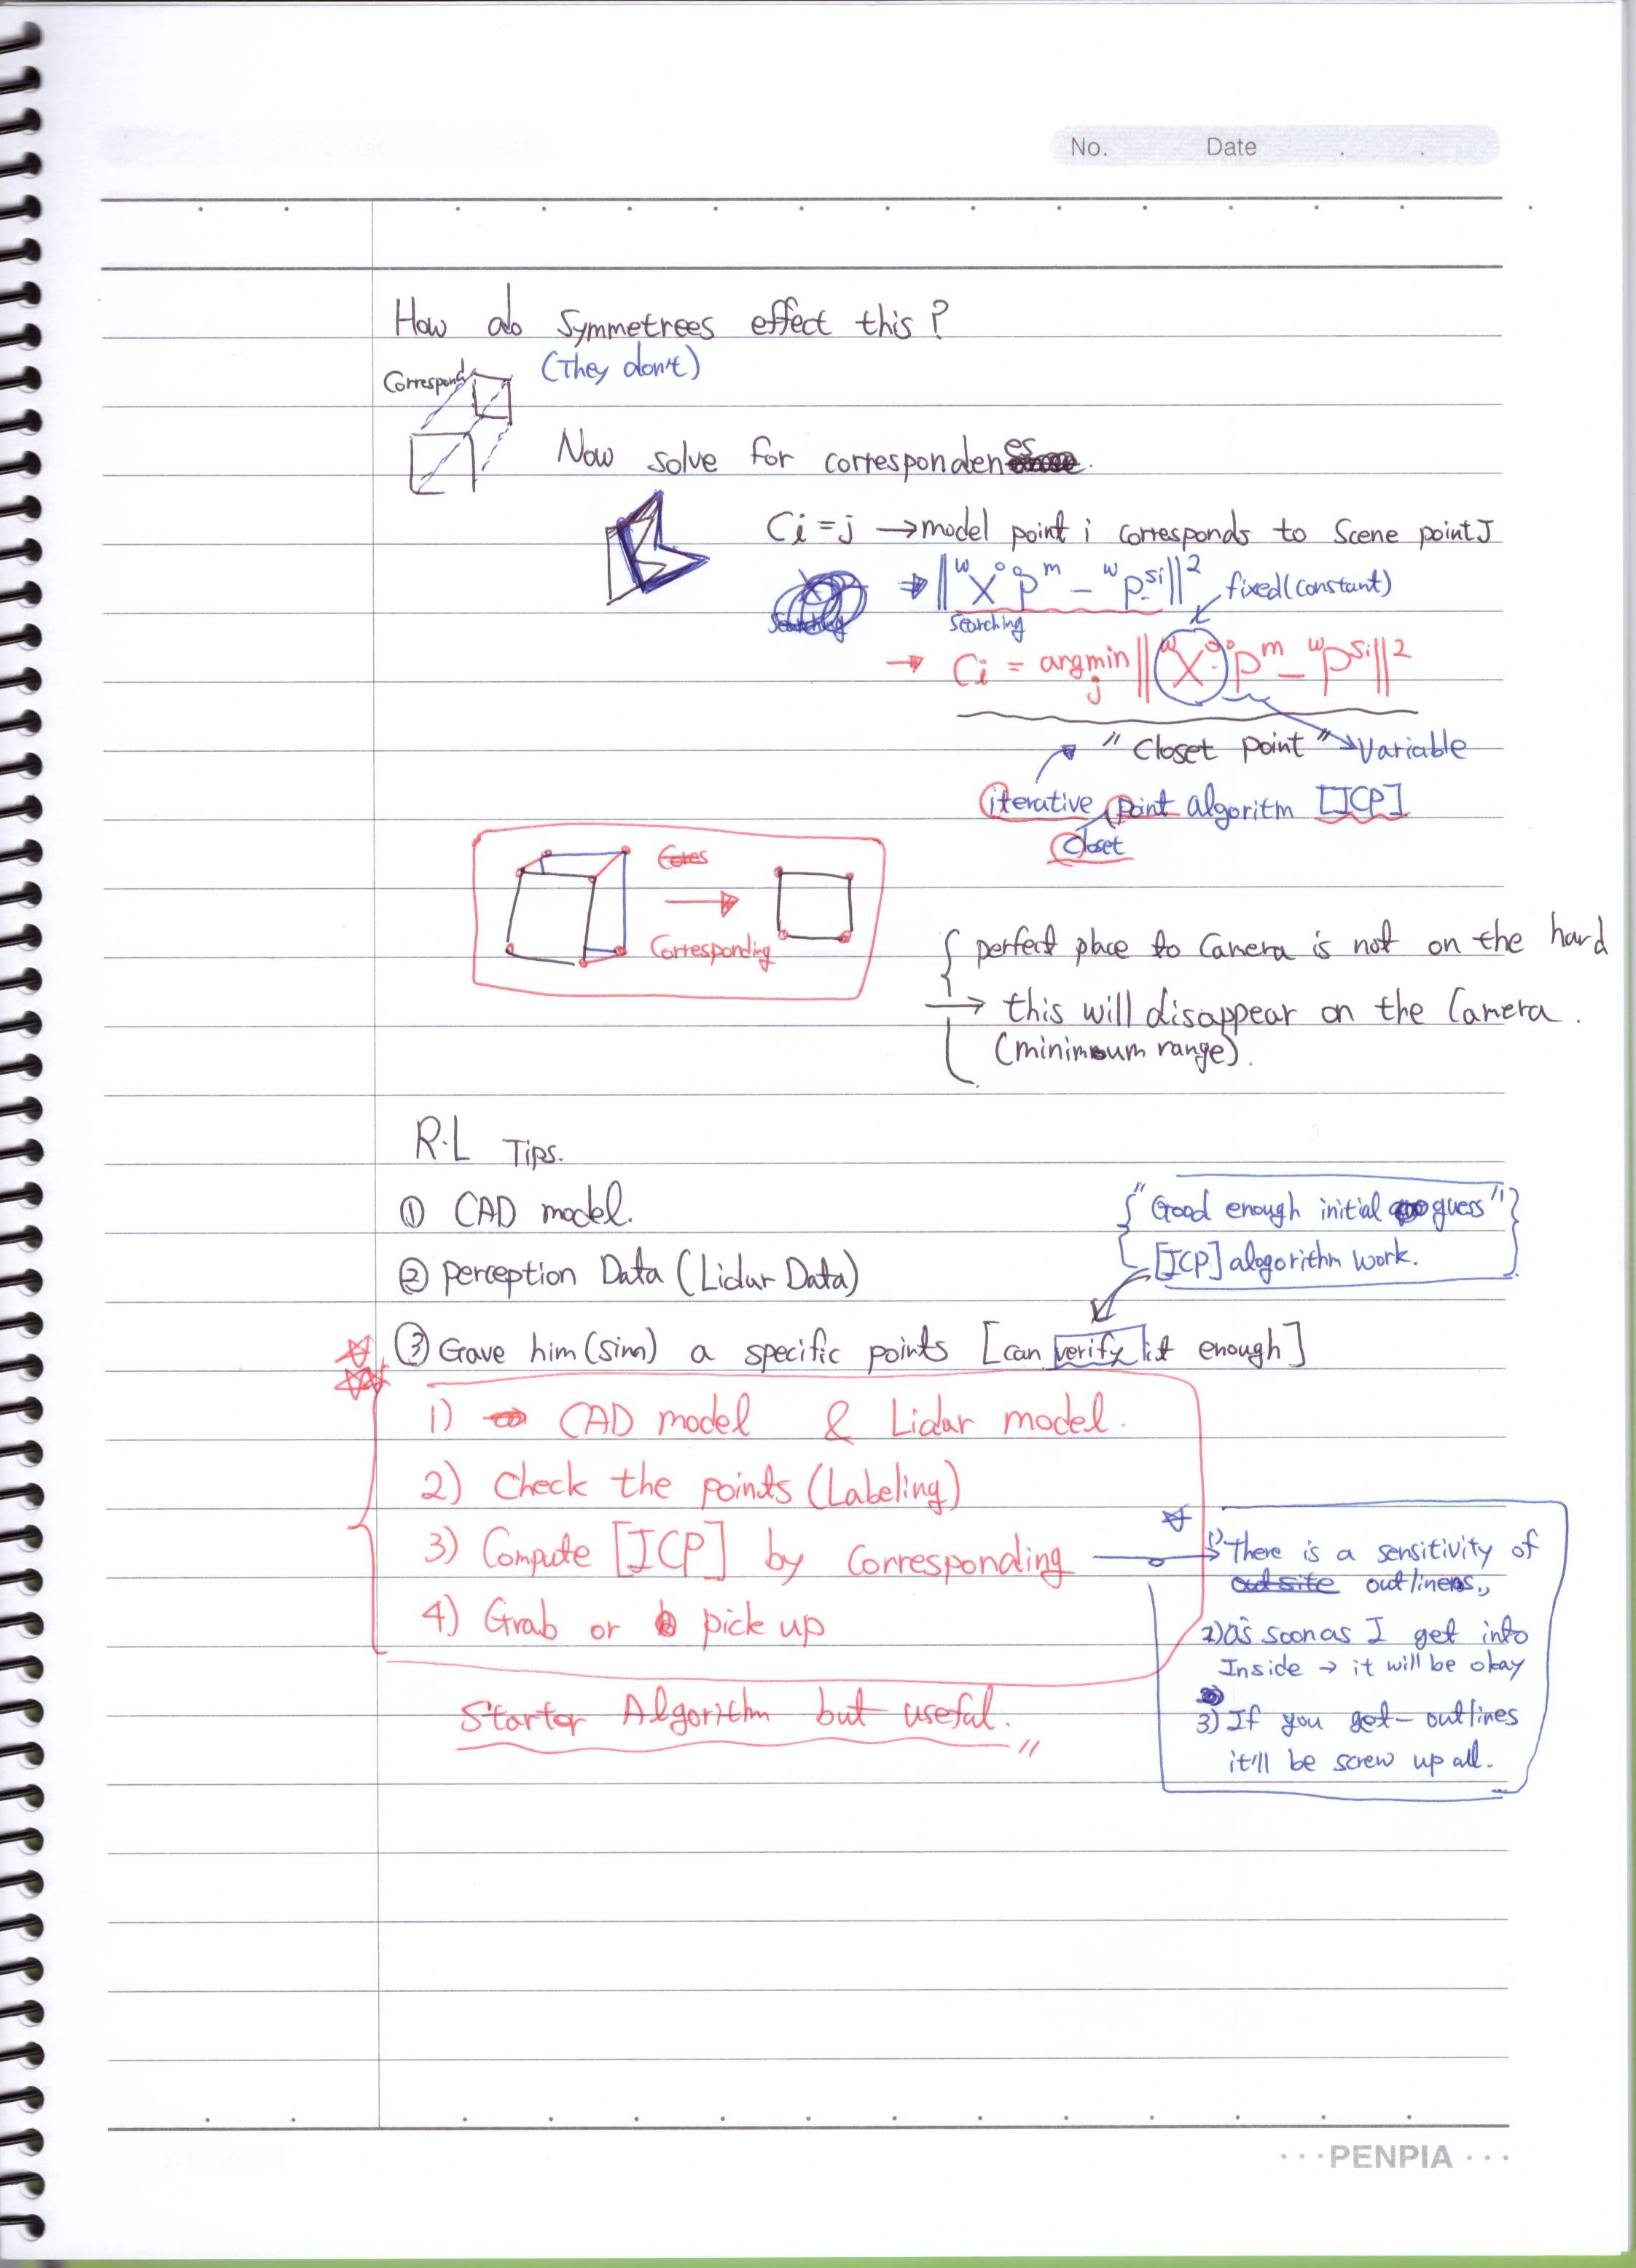 No. Date
How do Symmetrees effect this?
(They don't)
Correspond
Now solve for correspondenes.
Ci = j → model point i corresponds to Scene point J
⇒ ‖ʷX⁰ ⁰p^m − ʷp^si‖²
fixed(constant)
Searching
Searching
→ Ci = argmin_j ‖ʷX⁰ ⁰p^m − ʷp^si‖²
"Closet point" → Variable
iterative point algorithm [ICP]
Closet
Corresponding
perfect place to Camera is not on the hard
→ this will disappear on the Camera.
(minimum range).
R.L Tips.
① CAD model.
"Good enough initial guess"
② perception Data (Lidar Data)
[ICP] alogorithm work.
③ Gave him(sim) a specific points [can verify it enough]
1) CAD model & Lidar model.
2) Check the points (Labeling)
3) Compute [ICP] by Corresponding
4) Grab or pick up
1) There is a sensitivity of
outsite outliners,,
2) as soon as I get into
Inside → it will be okay
3) If you get outlines
it'll be screw up all.
Starter Algorithm but useful.
PENPIA